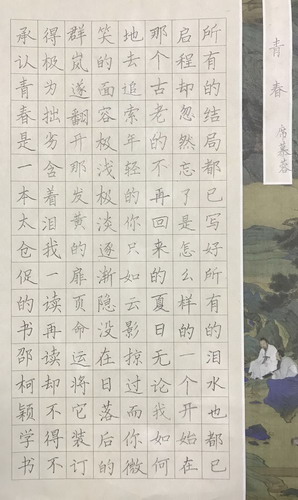 青春
席慕蓉
所有的结局都已写好所有的泪水也都已
启程却忽然忘了是怎么样的一个开始在
那个古老的不再回来的夏日无论我如何
地去追索年轻的你只如云影掠过而你微
笑的面容极浅极淡逐渐隐没在日落后的
群岚遂翻开那发黄的扉页命运将它装订
得极为拙劣含着泪我一读再读却不得不
承认青春是一本太仓促的书邵柯颖学书